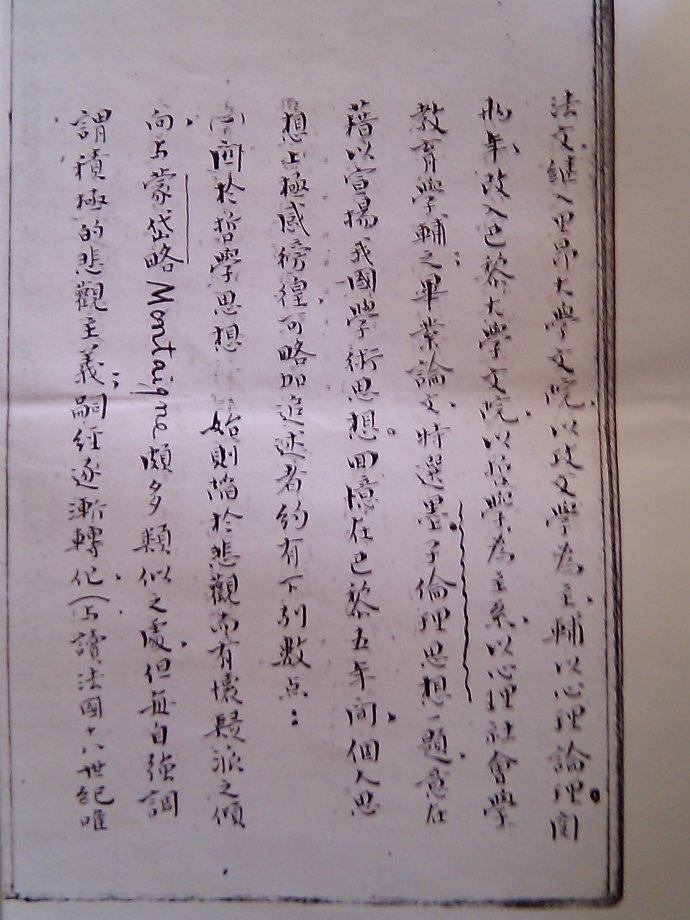 法文，繼入里昂大學文院，以政文學為主，輔以心理論理。閱
兩年，改入巴黎大學文院，以哲學為主系，以心理社會學
教育學輔之；畢業論文，特選墨子倫理思想一題，意在
藉以宣揚我國學術思想。回憶在巴黎五年間，個人思
想上極感徬徨，可略加追述者約有下列數点：
(一)關於哲學思想 始則陷於悲觀而有懷疑派之傾
向，与蒙岱略Montaigne頗多類似之處，但每自強調
謂積極的悲觀主義；嗣經逐漸轉化，(与讀法國十八世紀唯